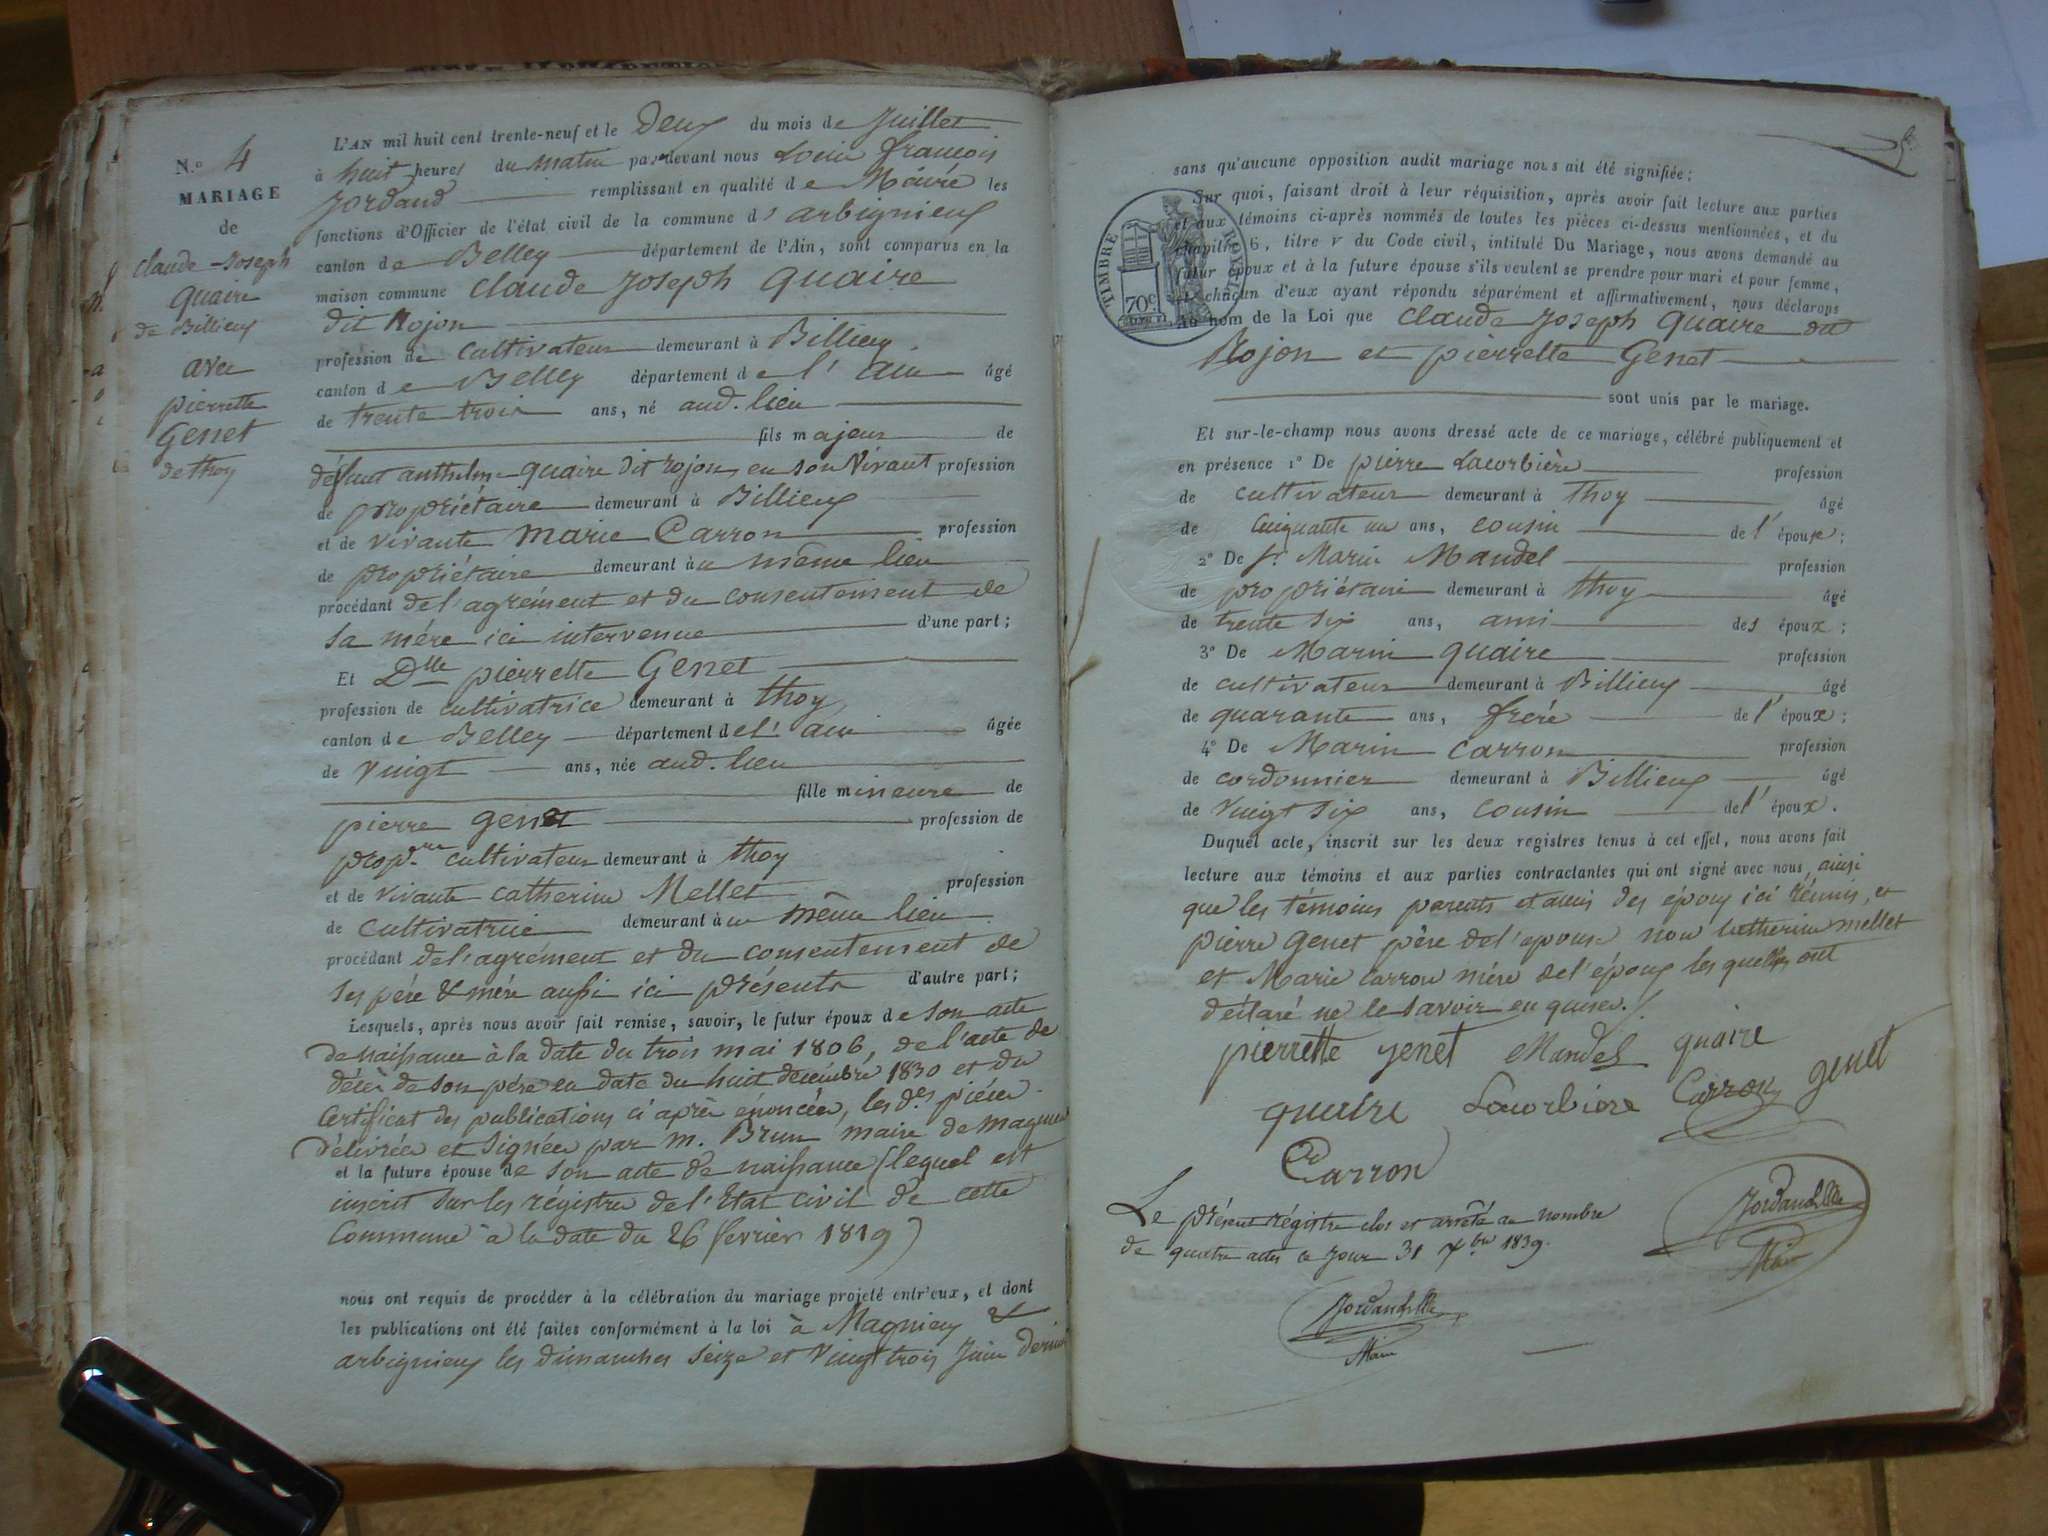 N.o 4
MARIAGE
de
Claude-Joseph
Quaire
de Billieux
avec
pierrette
Genet
de thoy
L'AN mil huit cent trente-neuf et le Deux du mois de Juillet
à huit heures du matin pardevant nous Louis françois
Jordand remplissant en qualité de Maire les
fonctions d'Officier de l'état civil de la commune d'arbignieux
canton de Belley département de l'Ain, sont comparus en la
maison commune Claude Joseph Quaire
dit Rojon
profession de cultivateur demeurant à Billieux
canton de Belley département de l'ain âgé
de trente trois ans, né aud. lieu
fils majeur de
défunt anthelme quaire dit rojon, en son vivant profession
de propriétaire demeurant à Billieux
et de vivante Marie Carron profession
de propriétaire demeurant au même lieu
procédant de l'agrément et du consentement de
sa mére ici intervenue d'une part;
Et Dlle pierrette Genet
profession de cultivatrice demeurant à thoy
canton de Belley département de l'ain âgée
de vingt ans, née aud. lieu
fille mineure de
pierre genet profession de
prop.re cultivateur demeurant à thoy
et de vivante catherine Mellet profession
de cultivatrice demeurant au même lieu
procédant de l'agrément et du consentement de
ses pére & mére aussi ici présents d'autre part;
Lesquels, après nous avoir fait remise, savoir, le futur époux de son acte
de naissance à la date du trois mai 1806, de l'acte de
décès de son pére en date du huit decembre 1830 et du
certificat des publications ci après énoncées, les d.es pièces
délivrées et signées par m. Brun maire de magnieu
et la future épouse de son acte de naissance (lequel est
inscrit sur les régistres de l'Etat civil de cette
Commune à la date du 26 fevrier 1819)
nous ont requis de procéder à la célébration du mariage projeté entr'eux, et dont
les publications ont été faites conformément à la loi à Magnieu &
arbignieux les dimanches seize et vingt trois Juin dernier
sans qu'aucune opposition audit mariage nous ait été signifiée;
Sur quoi, faisant droit à leur réquisition, après avoir fait lecture aux parties
et aux témoins ci-après nommés de toutes les pièces ci-dessus mentionnées, et du
chapitre 6, titre v du Code civil, intitulé Du Mariage, nous avons demandé au
futur époux et à la future épouse s'ils veulent se prendre pour mari et pour femme,
et chacun d'eux ayant répondu séparément et affirmativement, nous déclarons
Au nom de la Loi que Claude Joseph Quaire dit
Rojon et pierrette Genet
sont unis par le mariage.
TIMBRE ROYAL
70c
Et sur-le-champ nous avons dressé acte de ce mariage, célébré publiquement et
en présence 1° De pierre Lacorbière profession
de cultivateur demeurant à thoy âgé
de cinquante un ans, cousin de l'épouse;
2° De Sr. Marin Mandel profession
de propriétaire demeurant à thoy âgé
de trente six ans, ami des époux;
3° De Marin quaire profession
de cultivateur demeurant à Billieux âgé
de quarante ans, frére de l'époux;
4° De Marin Carron profession
de cordonnier demeurant à Billieux âgé
de vingt six ans, cousin de l'époux.
Duquel acte, inscrit sur les deux registres tenus à cet effet, nous avons fait
lecture aux témoins et aux parties contractantes qui ont signé avec nous, ainsi
que les témoins parents et amis des époux ici réunis, et
pierre Genet pére de l'epouse non catherine mellet
et Marie Carron mére de l'époux lesquelles ont
déclaré ne le savoir en quises./.
pierrette genet Mandel quaire
quaire Lacorbiere Carron genet
Carron
Jordand
Maire
Le présent régistre clos et arrêté au nombre
de quatre actes ce jour 31 Xbre 1839.
Jordand
Maire